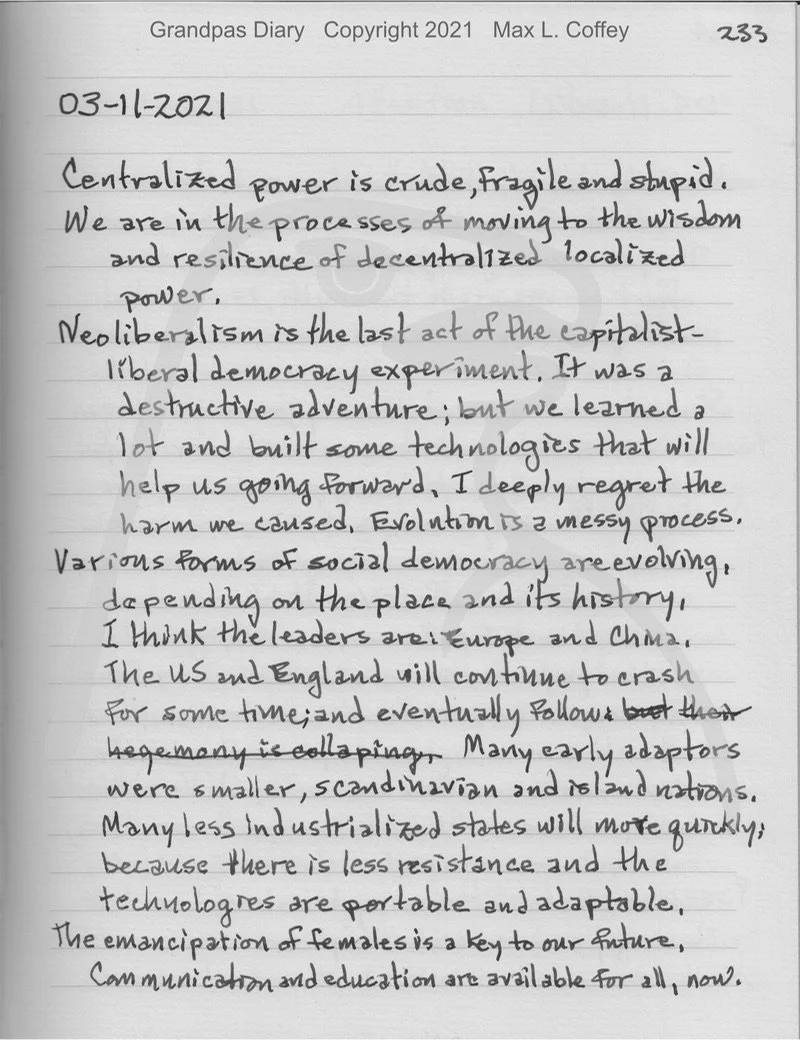 Grandpas Diary Copyright 2021 Max L. Coffey 233
03-11-2021
Centralized power is crude, fragile and stupid.
We are in the processes of moving to the wisdom
and resilience of decentralized localized
power.
Neoliberalism is the last act of the capitalist-
liberal democracy experiment. It was a
destructive adventure; but we learned a
lot and built some technologies that will
help us going forward. I deeply regret the
harm we caused. Evolution is a messy process.
Various forms of social democracy are evolving,
depending on the place and its history,
I think the leaders are: Europe and China.
The US and England will continue to crash
for some time; and eventually follow: but their
hegemony is collaping, Many early adaptors
were smaller, scandinavian and island nations.
Many less industrialized states will move quickly;
because there is less resistance and the
technologies are portable and adaptable.
The emancipation of females is a key to our future.
Communication and education are available for all, now.